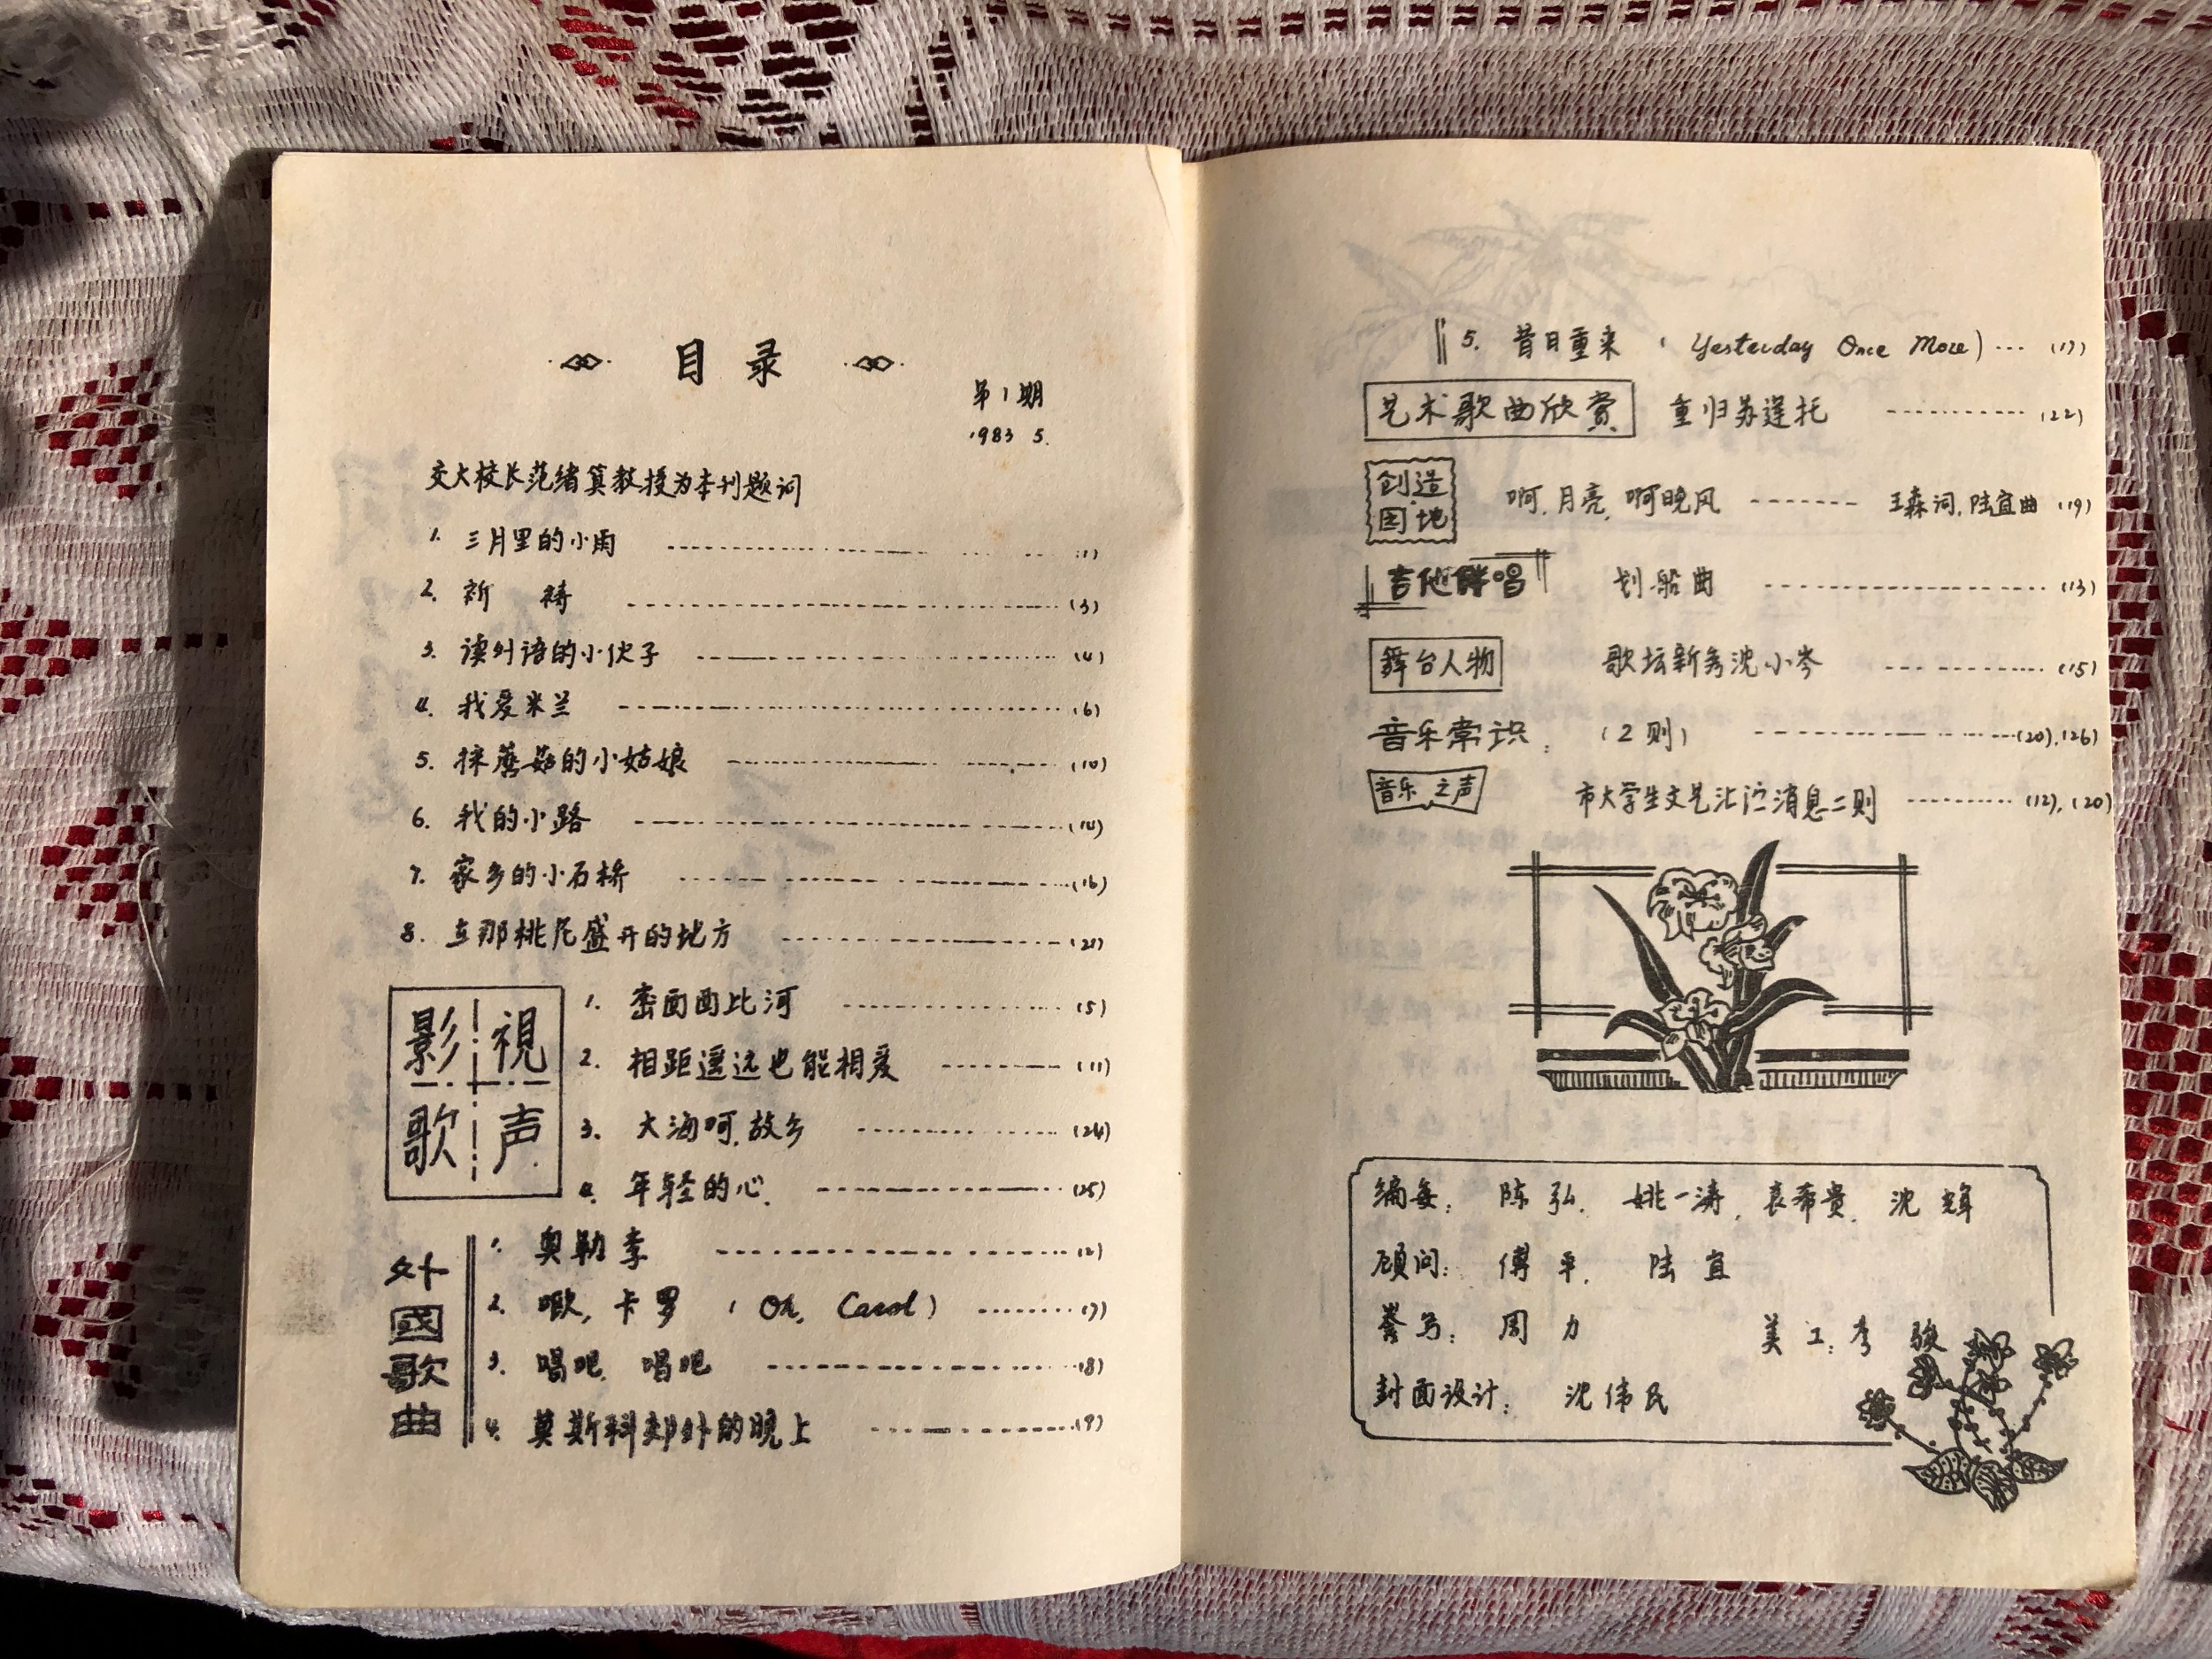 目录
第1期
1983 5.
交大校长范绪箕教授为本刊题词
1. 三月里的小雨 (1)
2. 祈祷 (3)
3. 读外语的小伙子 (4)
4. 我爱米兰 (6)
5. 採蘑菇的小姑娘 (10)
6. 我的小路 (14)
7. 家乡的小石桥 (16)
8. 在那桃花盛开的地方 (21)
影视歌声
1. 密西西比河 (5)
2. 相距遥远也能相爱 (11)
3. 大海啊,故乡 (24)
4. 年轻的心. (25)
外國歌曲
1. 奥勒 (2)
2. 噢,卡罗 (Oh, Carol) (7)
3. 唱吧 唱吧 (8)
4. 莫斯科郊外的晚上 (9)
5. 昔日重来 (Yesterday Once More) (17)
艺术歌曲欣赏 重归苏莲托 (22)
创造园地 啊,月亮,啊晚风 王森词,陆宜曲 (19)
吉他伴唱 划船曲 (13)
舞台人物 歌坛新秀沈小岑 (15)
音乐常识: (2则) (20),(26)
音乐之声 市大学生文艺汇演消息二则 (12),(20)
编委: 陈弘, 姚一涛, 袁希贵, 沈辉
顾问: 傅平, 陆宜
誊写: 周力 美工: 李骏
封面设计: 沈伟民